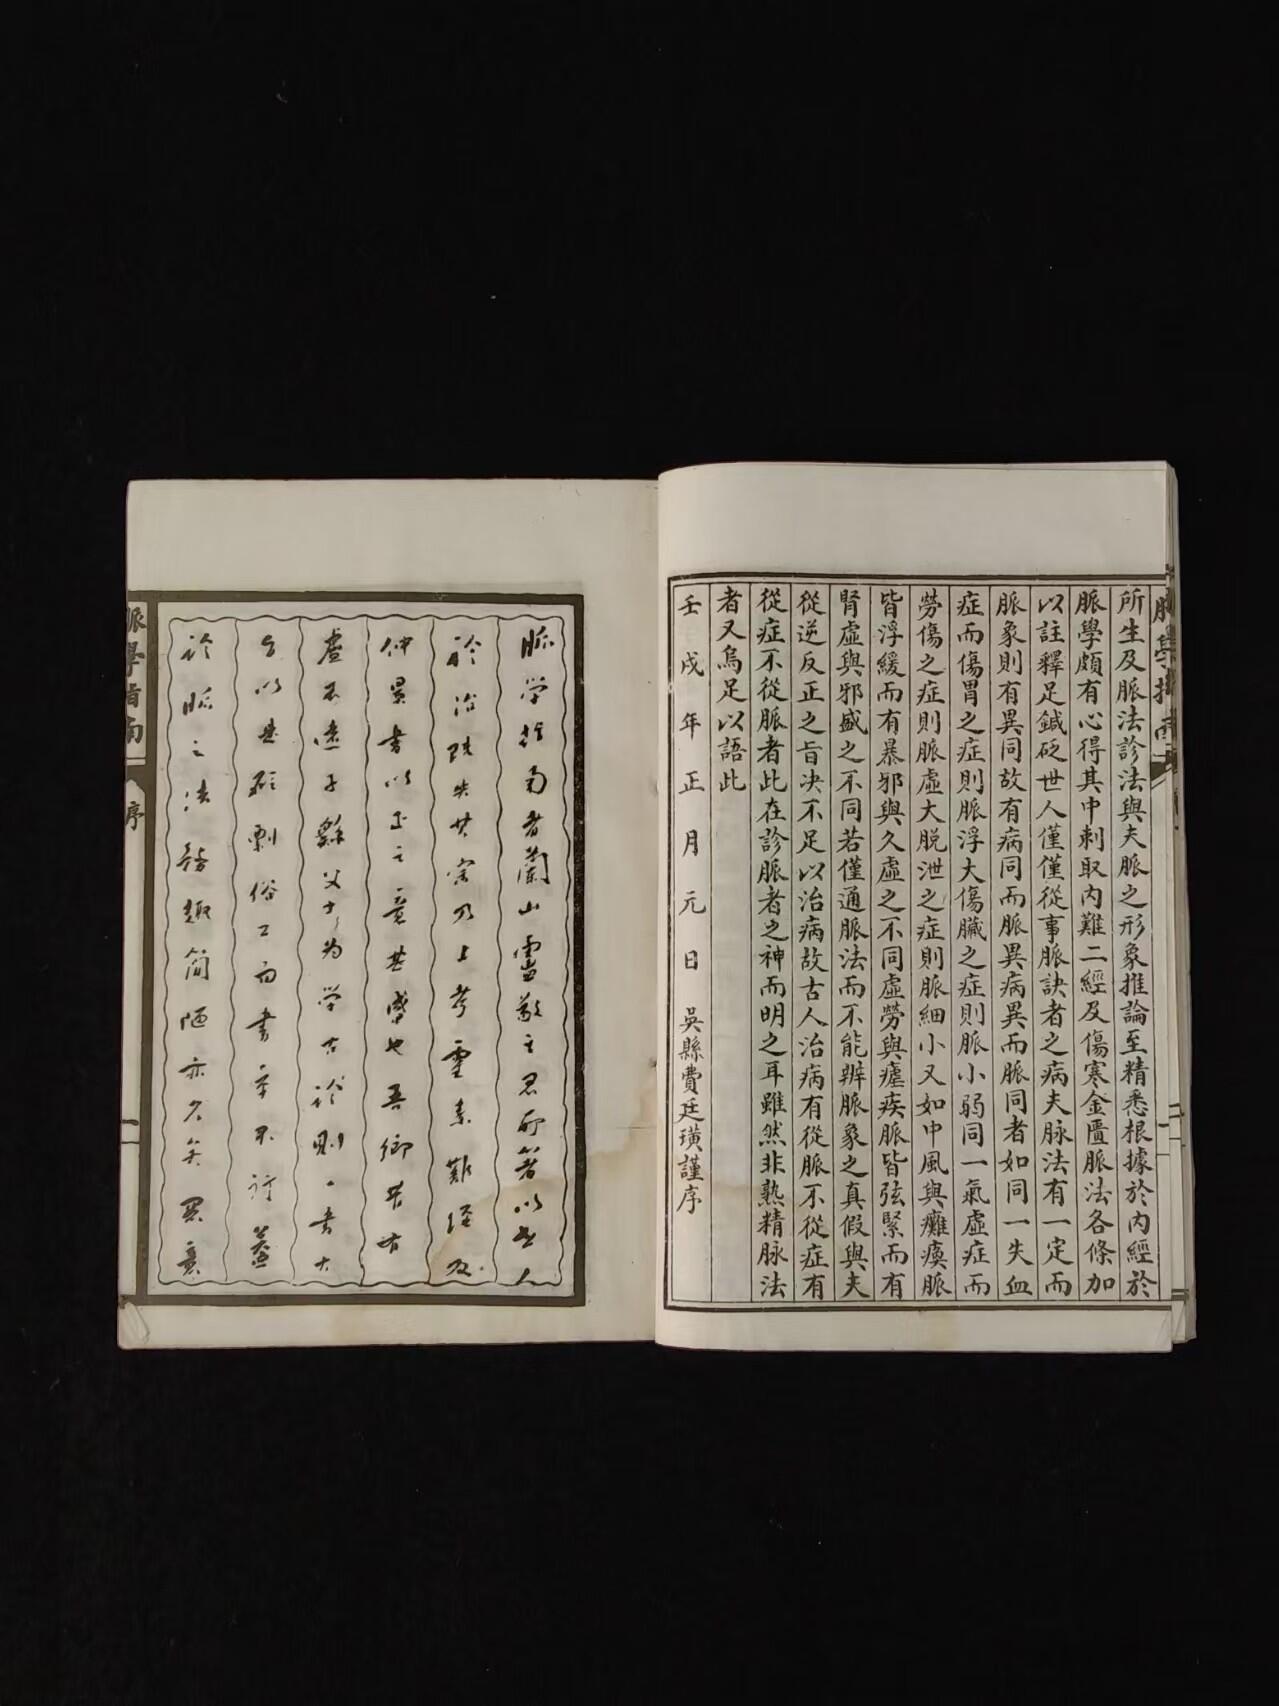 脈學指南
所生及脈法診法與夫脈之形象推論至精悉根據於內經於
脈學頗有心得其中刺取內難二經及傷寒金匱脈法各條加
以註釋足鍼砭世人僅僅從事脈訣者之病夫脉法有一定而
脈象則有異同故有病同而脈異病異而脈同者如同一失血
症而傷胃之症則脈浮大傷臟之症則脈小弱同一氣虛症而
勞傷之症則脈虛大脱泄之症則脈細小又如中風與癱瘓脈
皆浮緩而有暴邪與久虛之不同虛勞與瘧疾脈皆弦緊而有
腎虛與邪盛之不同若僅通脈法而不能辨脈象之真假與夫
從逆反正之旨决不足以治病故古人治病有從脈不從症有
從症不從脈者此在診脈者之神而明之耳雖然非熟精脉法
者又烏足以語此
壬戌年正月元日 吳縣費廷璜謹序
脈学指南者蘭山盧敬之君所著以世人
於診訣失其宗乃上考靈素難經及
仲景書以正之意甚盛也吾鄉昔有
盧不遠子繇父子為学古診則一書大
旨以典碩剽俗工而書卒不行蓋
於脈之法務趣簡陋亦久矣異哉
脈學指南
序